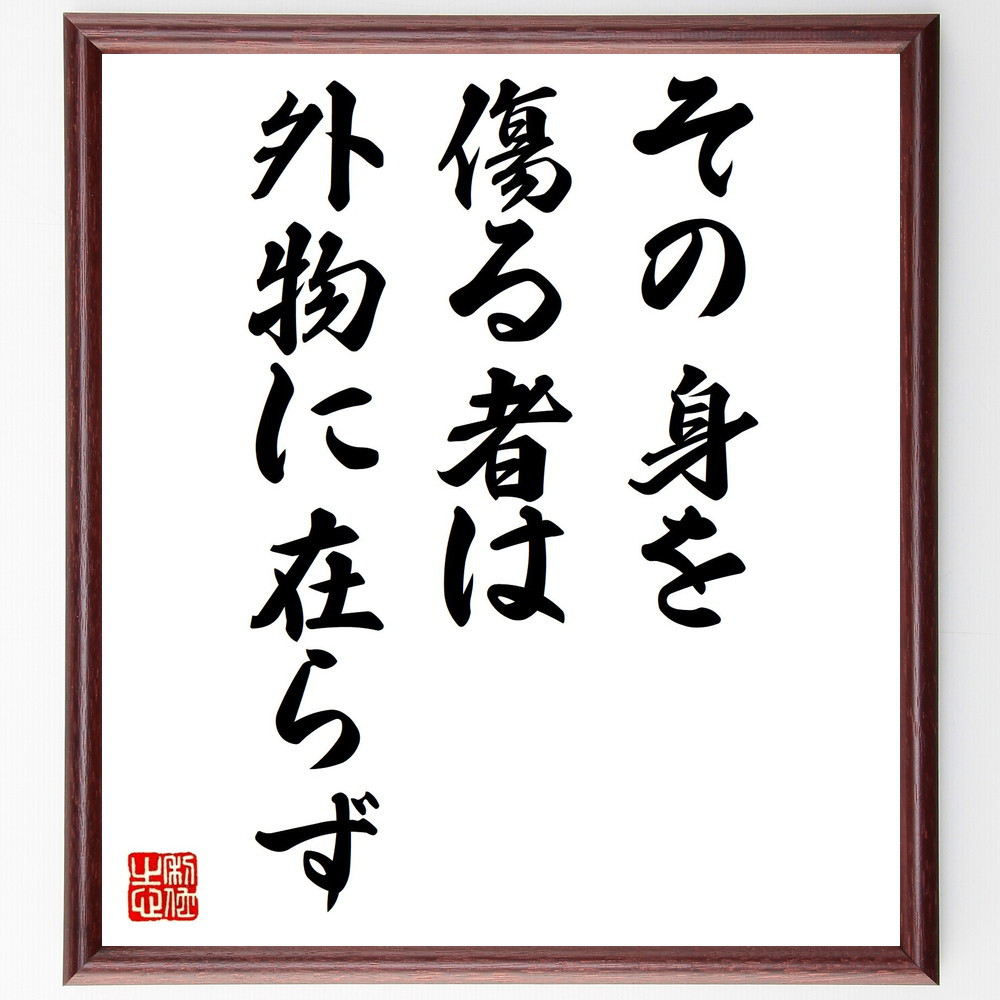 その身を
傷る者は
外物に在らず